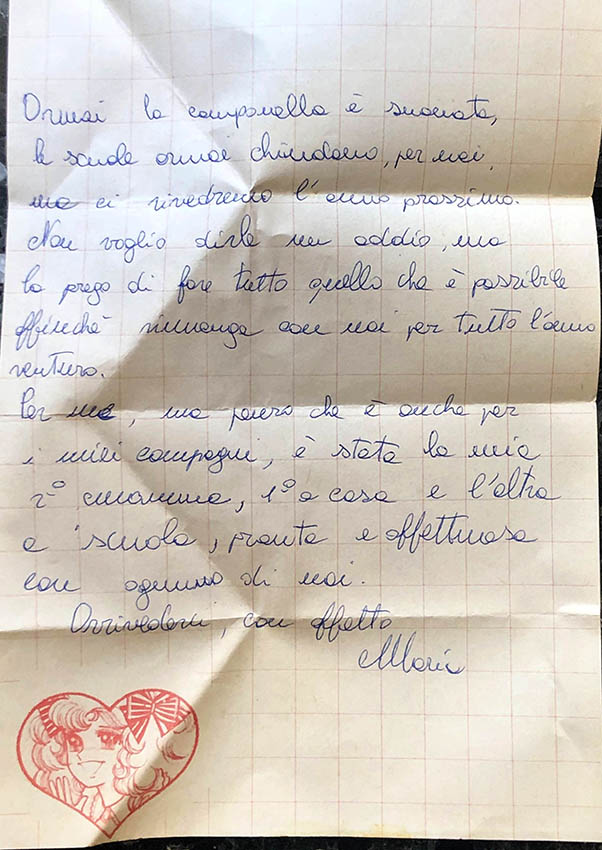 Ormai la campanella è suonata,
le scuole ormai chiudono, per noi,
ma ci rivedremo l'anno prossimo.
Non voglio dirle un addio, ma
la prego di fare tutto quello che è possibile
affinché rimanga con noi per tutto l'anno
venturo.
Per me, ma penso che è anche per
i miei compagni, è stata la mia
2º mamma, 1º a casa e l'altra
a scuola, pronta e affettuosa
con ognuno di noi.
Arrivederci, con affetto
Maria